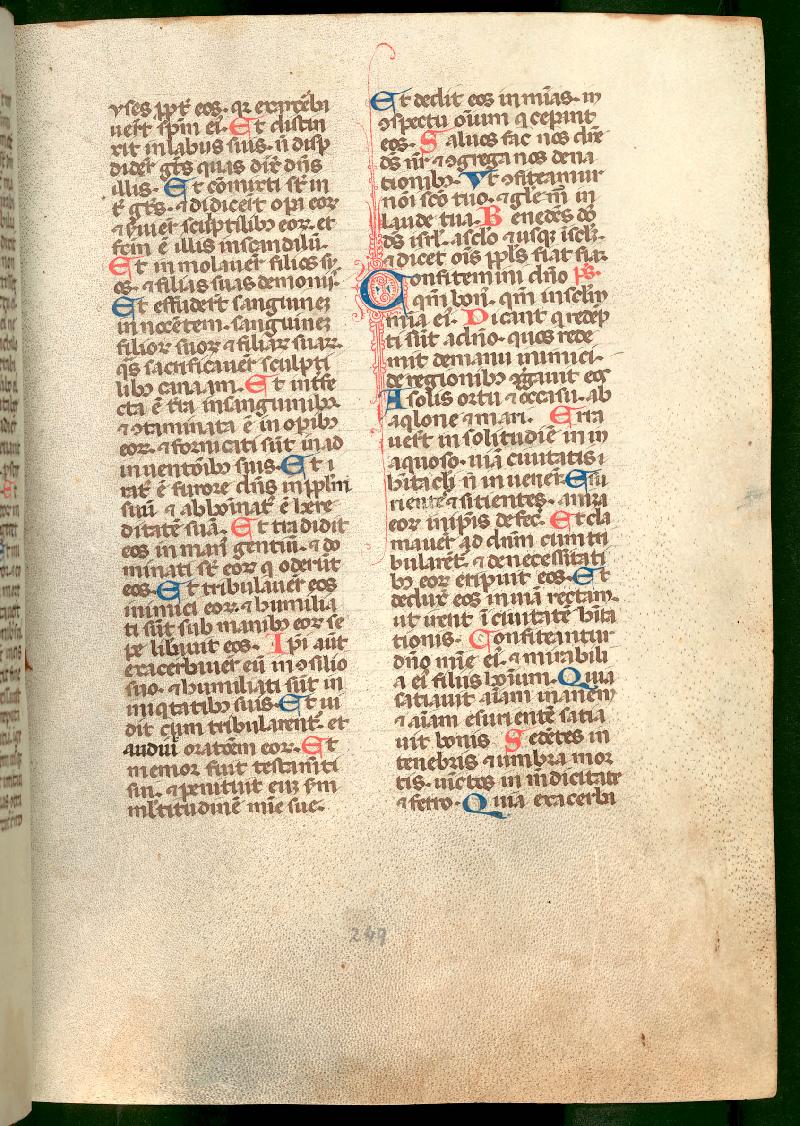 yses ꝓpt̄ eos· qr̄ exac̄erbȧ
uer̄t sp̄m eī· Et distin
xit in labiis suis· n̄ disp
dider̄t gr̄es quas dix̄ dn̄s
illis· Et cōmixti sr̄ in
t̄ gr̄es· ⁊ didicer̄t op̄a eoꝝ
⁊ ẜuier̄ sculptilibꝫ eoꝝ· et
fc̄m ē illis in scandalū·
Et īmolauer̄ filios su
os· ⁊ filias suas demoniis·
Et effuder̄t sanguinez
innocētem· sanguinez
filioꝝ suoꝝ ⁊ filiaꝝ suaꝝ·
qs̄ sacrificauer̄ sculpti
libꝫ canaam· Et infe
cta ē tr̄a in sanguinibꝫ
⁊ ↄtaminata ē in opibꝫ
eoꝝ· ⁊ fornicati sūt in ad
inuentōibꝫ suis· Et i
rat᷑ ē furore dn̄s in pplm̄
suū ⁊ abhoīnat᷑ ē here
ditatē suā· Et tradidit
eos in man᷑ gentiū· ⁊ do
minati sr̄ eoꝝ q oderūt
eos· Et tribulauer̄ eos
inimici eoꝝ· ⁊ humilia
ti sūt sub manibꝫ eoꝝ se
pe libauit eos· Ipi aūt
exacerbauer̄ eū in ↄsilio
suo· ⁊ humiliati sūt in
iniqtatibꝫ suis· Et ui
dit cum tribularent᷑· et
audiuī oratōem eoꝝ· Et
memor fuit testam̄ti
sui· ⁊ penituit eū ẜm
ml̄titudinē mīe sue·
Et dedit eos in mīas· in
ↄspectu oīum q cepant
eos· Saluos fac nos dn̄e
ds̄ nr̄ ⁊ ↄgrega nos de na
tionibꝫ· Vt ↄfiteamur
noī scō tuo· ⁊ glem̄ in
laude tua· Benedcs̄ dn̄s
ds̄ isrl̄· a sclo ⁊ usqꝫ i sclꝫ·
⁊ dicet oīs ppls̄ fiat fiat·
Confitemini dn̄o ps̄·
qm̄ bon᷑· qm̄ in sclm̄
mīa ei᷑· Dicant q redēp
ti sūt a dn̄o· quos rede
mit de manu inimici·
de regionibꝫ ↄgauit eos
A solis ortu ⁊ occasu· ab
aqlone ⁊ mari· Erra
uer̄t in solitudīe in in
aquoso· uiā ciuitatis
hitacl̄i n̄ inuener̄· Esu
rientes ⁊ sitientes· aīma
eoꝝ in ipīs defec̄· Et cla
mauer̄ ad dn̄m cum tri
bularēt᷑· ⁊ de necessitati
bꝫ eoꝝ eripuit eos· Et
deduxͭ eos in uiā rectam·
ut irent ī ciuitatē hīta
tionis· Confiteantur
dn̄o mīe ei᷑· ⁊ mirabili
a ei᷑ filiis hoīum· Quia
satiauit aīam inanem
⁊ aīam esurientē satia
uit bonis Sedētes in
tenebris ⁊ umbra mor
tis· uīctos in mēdicitate
⁊ ferro· Quia exacerba
249